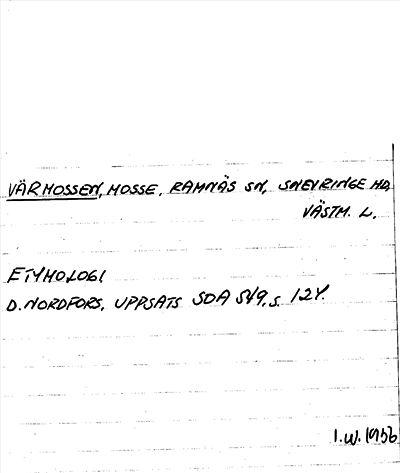 VÄRMOSSEN, MOSSE, RAMNÄS SN, SNEVRINGE HD,
VÄSTM. L.
ETYMOLOGI
D. NORDFORS, UPPSATS SOA 549, s. 124.
I.W. 1956